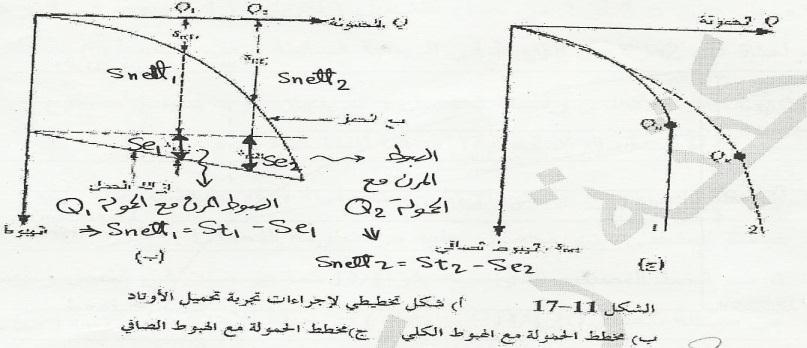 Q₁ Q₂
الحمولة Q
Q الحمولة
Snett₁ Snett₂
مع الحفر
Se₁ Se₂
الهبوط
المرن مع
الحمولة Q₂
إزالة الحمل
الهبوط المرن مع الحمولة Q₁
⇒ Snett₁ = St₁ - Se₁
هبوط
Snett₂ = St₂ - Se₂
Qu
Qu
1 2
(ب) (ج)
الشكل 11-17 أ) شكل تخطيطي لإجراءات تجربة تحميل الأوتاد
ب) مخطط الحمولة مع الهبوط الكلي ج) مخطط الحمولة مع الهبوط الصافي